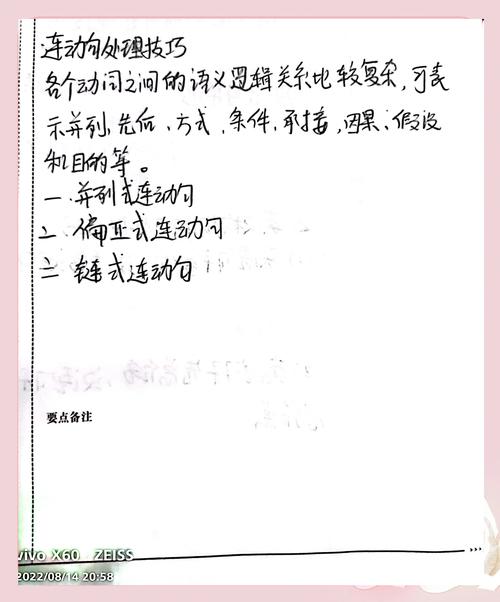 连动句处理技巧
各个动词之间的语义逻辑关系比较复杂，可表
示并列、先后、方式、条件、承接，因果、假设
和目的等。
一.并列式连动句
二.偏正式连动句
三 链式连动句
要点备注
vivo X60 ZEISS
2022/08/14 20:58